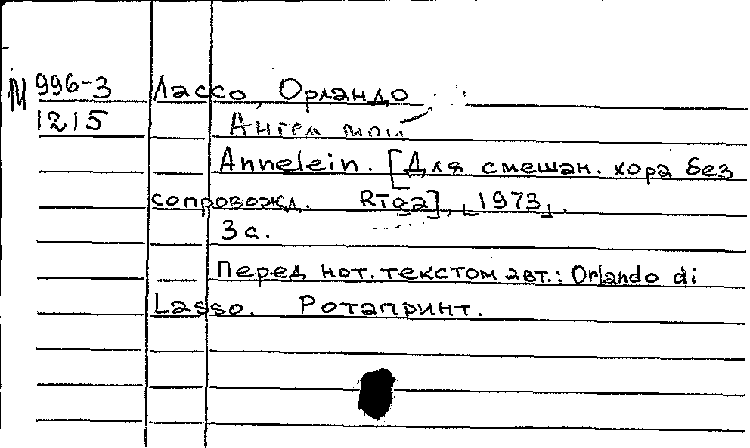 М 996-3 Лассо, Орландо
1215 Ангел мой
Annelein. [Для смешан. хора без
сопровожд. Rīga], [1973].
3 с.
Перед нот. текстом авт.: Orlando di
Lasso. Ротапринт.